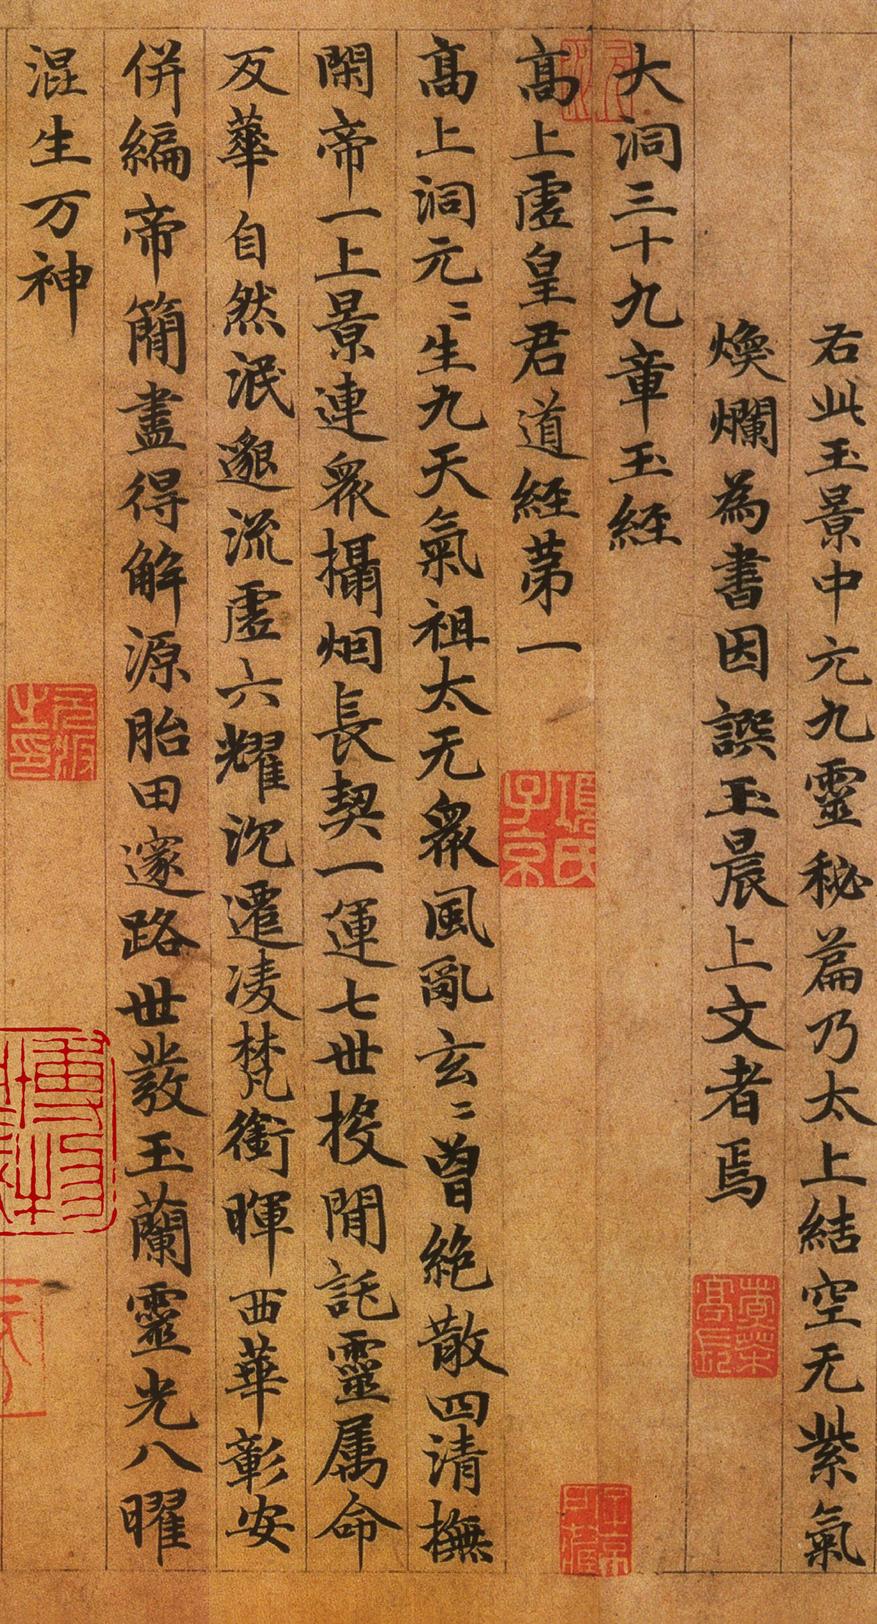 右此玉景中元九靈秘篇乃太上結空无紫氣
煥爛為書因譔玉晨上文者焉
大洞三十九章玉經
高上虛皇君道經苐一
高上洞元〻生九天氣祖太无衆風亂玄〻曽絶散四清撫
閑帝一上景連衆攝烟長契一運七世投閒託靈属命
反華自然泯邈流虛六耀沉遷凌梵銜暉西華彰安
併編帝簡盡得解源胎田邃路世發玉蘭靈光八曜
混生万神
項氏子京